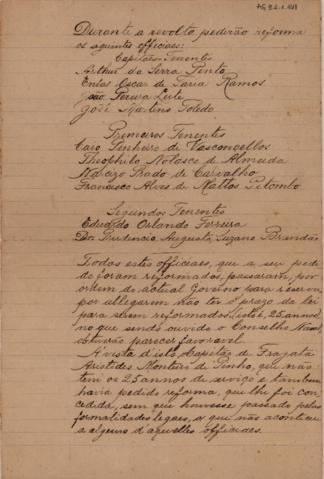 Durante a revolta pedirão reforma
os seguintes officiaes:
Capitães-Tenentes
Arthur da Serra Pinto
Enéas Oscar de Faria Ramos
João Pereira Leite
José Martins Toledo
Primeiros Tenentes
Caio Pinheiro de Vasconcellos
Theophilo Nolasco de Almeida
Narcizo Prado de Carvalho
Francisco Alves de Mattos Pitombo
Segundos Tenentes
Eduardo Orlando Ferreira
Dor Prudencio Augusto Suzano Brandão
Todos estes officiaes, que a seu pedi-
do foram reformados, passaram, por
ordem do actual Governo para reserva
por allegarem não ter o prazo da lei
para serem reformados, isto é, 25 annos,
no que sendo ouvido o Conselho Naval
obtiverão parecer favoravel.
Á vista d'isto, Capitão de Fragata
Aristides Monteiro de Pinho, que não
tem os 25 annos de serviço e tambem
havia pedido reforma, que lhe foi con-
cedida, sem que houvesse passado pelas
formalidades legaes, o que não aconteceu
a alguns d'aquelles officiaes.